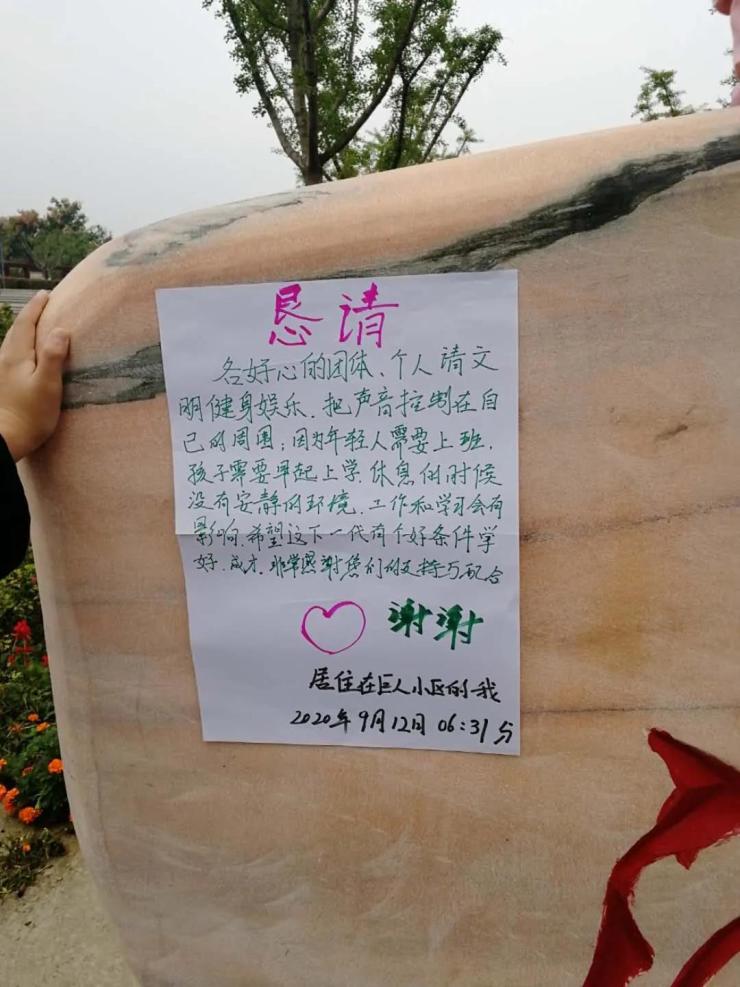 恳请
各好心的团体、个人请文
明健身娱乐.把声音控制在自
己的周围;因为年轻人需要上班.
孩子需要早起上学.休息的时候
没有安静的环境.工作和学习会有
影响.希望这下一代有个好条件学
好.成才.非常感谢您们的支持与配合
谢谢
居住在巨人小区的我
2020年9月12日 06:31分